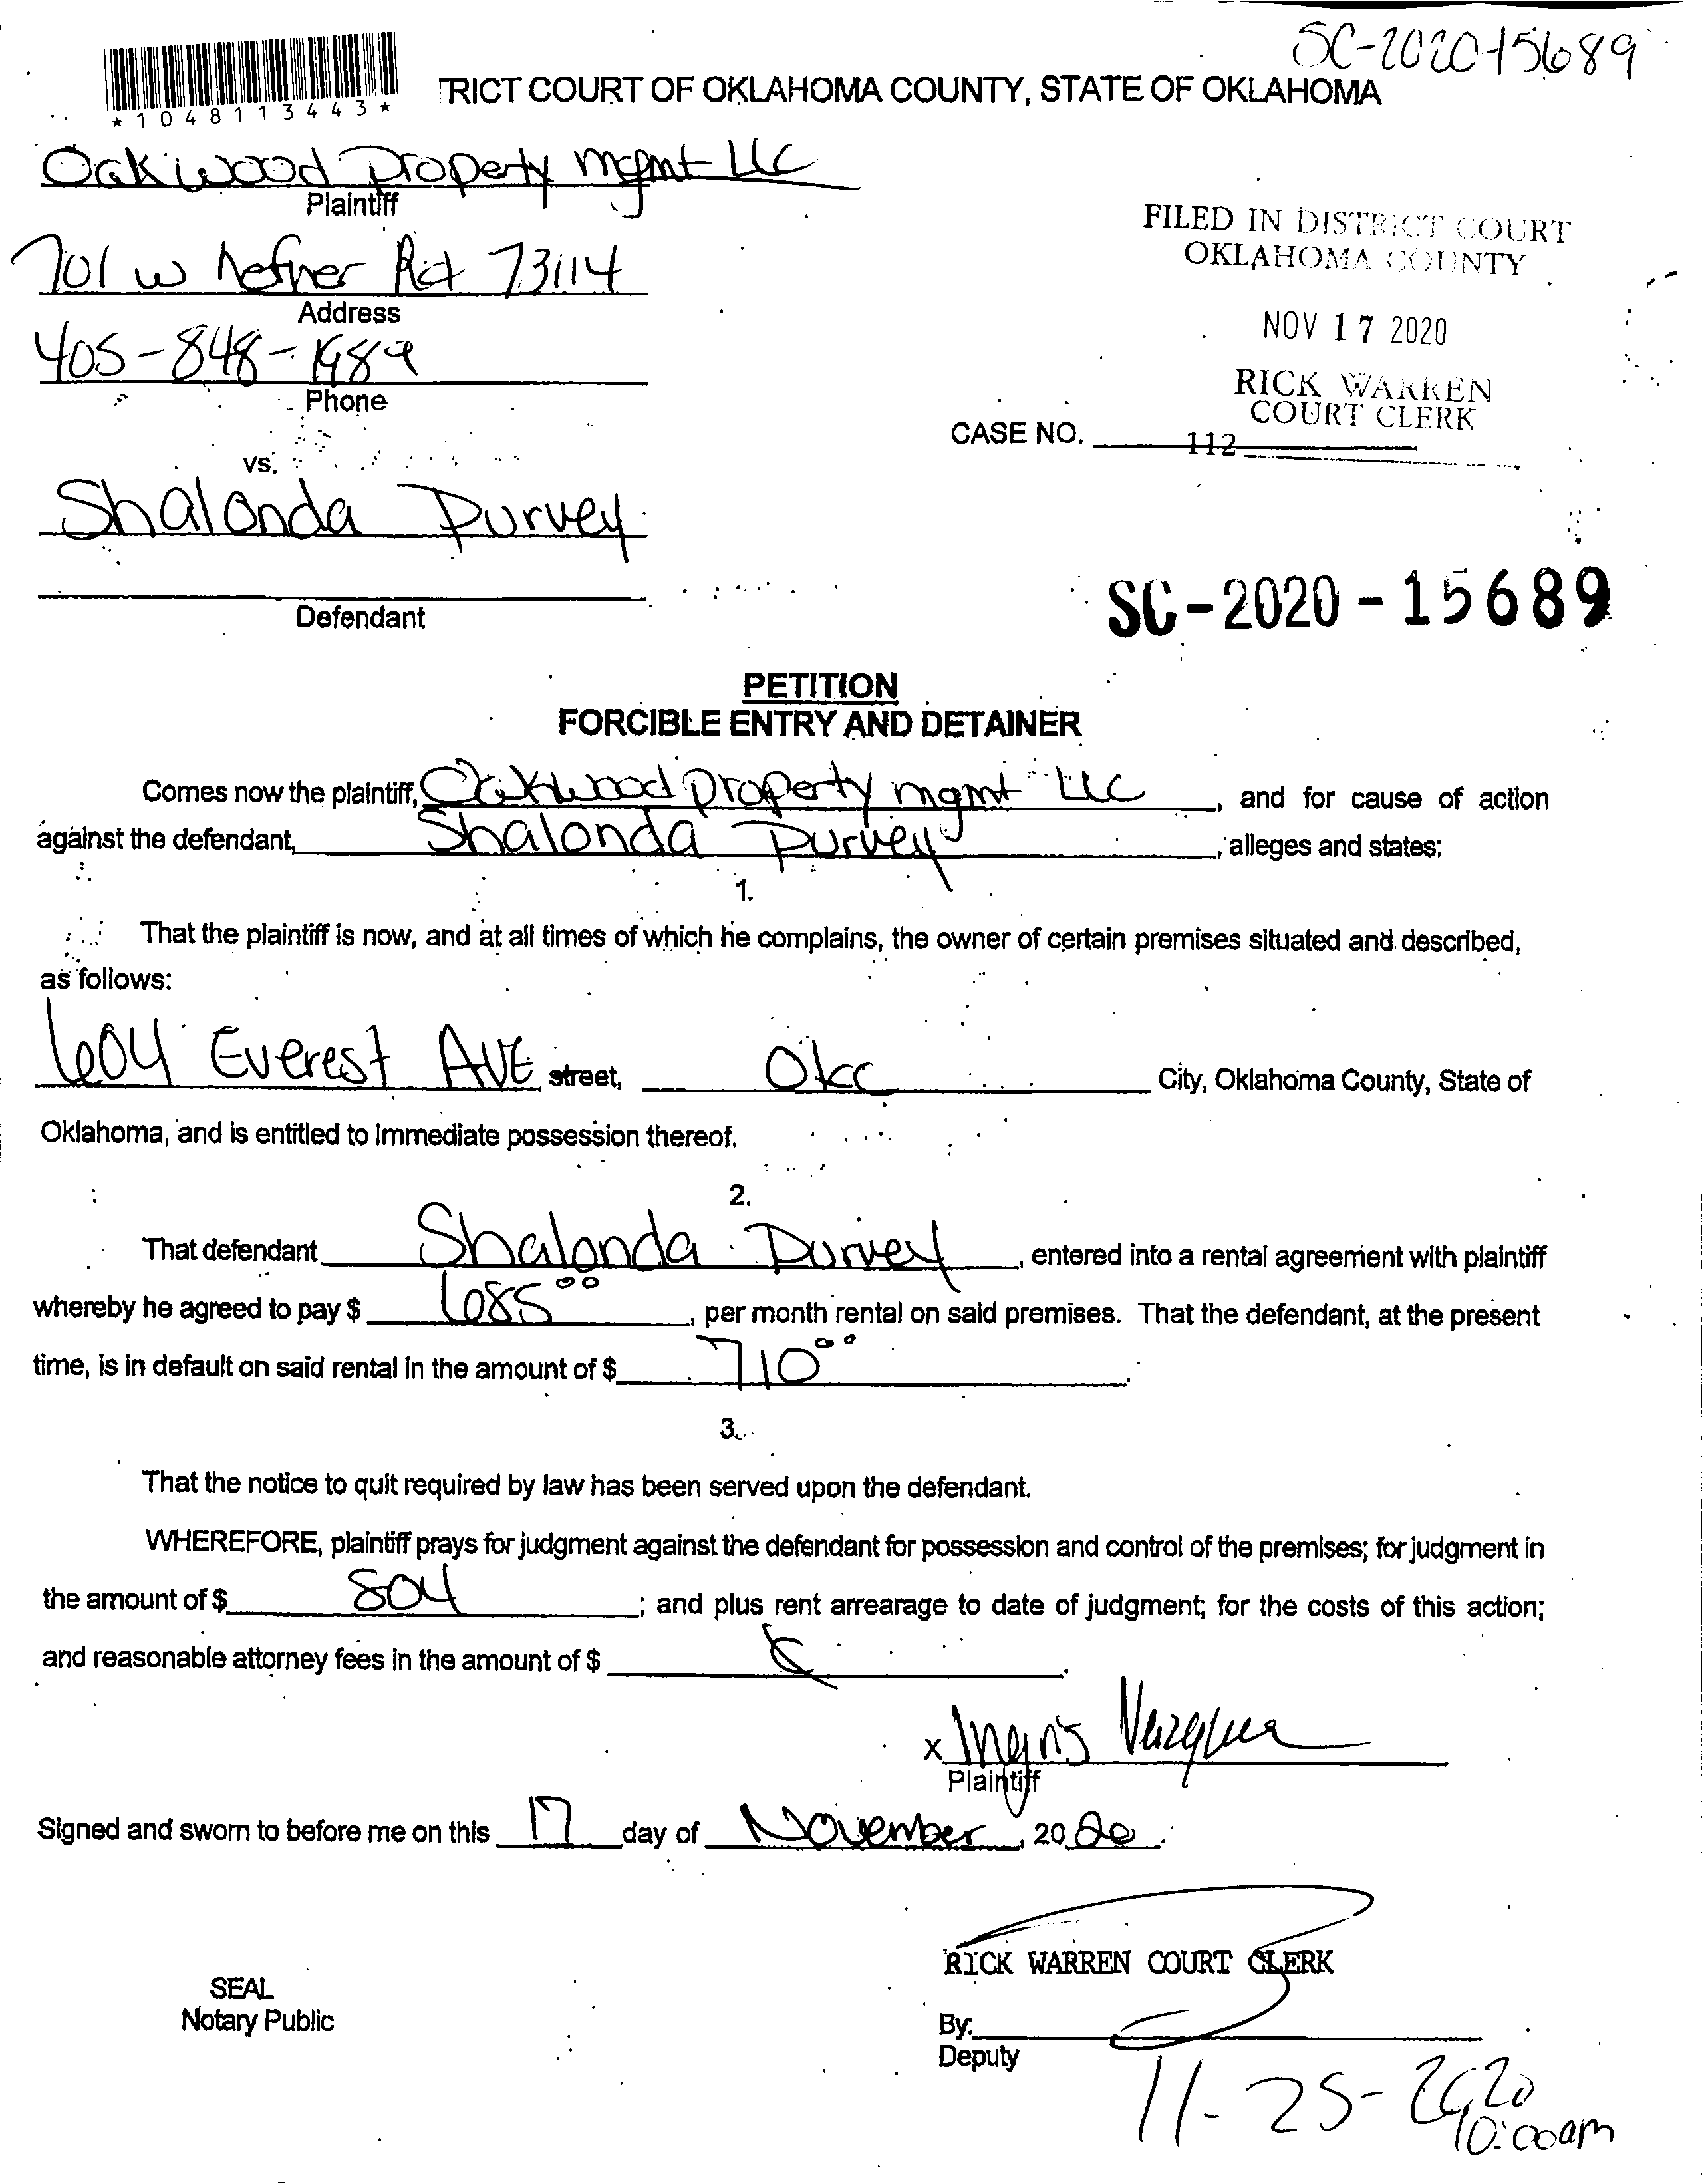 SC-2020-15689
*1048113443*
TRICT COURT OF OKLAHOMA COUNTY, STATE OF OKLAHOMA
Oakwood Property mgmt LLC
Plaintiff
701 w hefner Rd 73114
Address
405-848-1989
Phone
FILED IN DISTRICT COURT
OKLAHOMA COUNTY
NOV 17 2020
RICK WARREN
COURT CLERK
CASE NO. 112
vs.
Shalonda Purvey
Defendant
SC-2020-15689
PETITION
FORCIBLE ENTRY AND DETAINER
Comes now the plaintiff, Oakwood property mgmt LLC, and for cause of action
against the defendant, Shalonda Purvey, alleges and states:
1.
That the plaintiff is now, and at all times of which he complains, the owner of certain premises situated and described,
as follows:
604 Everest AVE street, Okc City, Oklahoma County, State of
Oklahoma, and is entitled to immediate possession thereof.
2.
That defendant Shalonda Purvey, entered into a rental agreement with plaintiff
whereby he agreed to pay $ 685.00, per month rental on said premises. That the defendant, at the present
time, is in default on said rental in the amount of $ 710.00.
3.
That the notice to quit required by law has been served upon the defendant.
WHEREFORE, plaintiff prays for judgment against the defendant for possession and control of the premises; for judgment in
the amount of $ 804; and plus rent arrearage to date of judgment; for the costs of this action;
and reasonable attorney fees in the amount of $
x Vazquez
Plaintiff
Signed and sworn to before me on this 17 day of November, 2020.
RICK WARREN COURT CLERK
SEAL
Notary Public
By:
Deputy
11-25-2020
10:00am